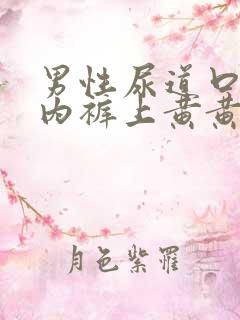 男性尿道口
内裤上黄黄
月色紫罹